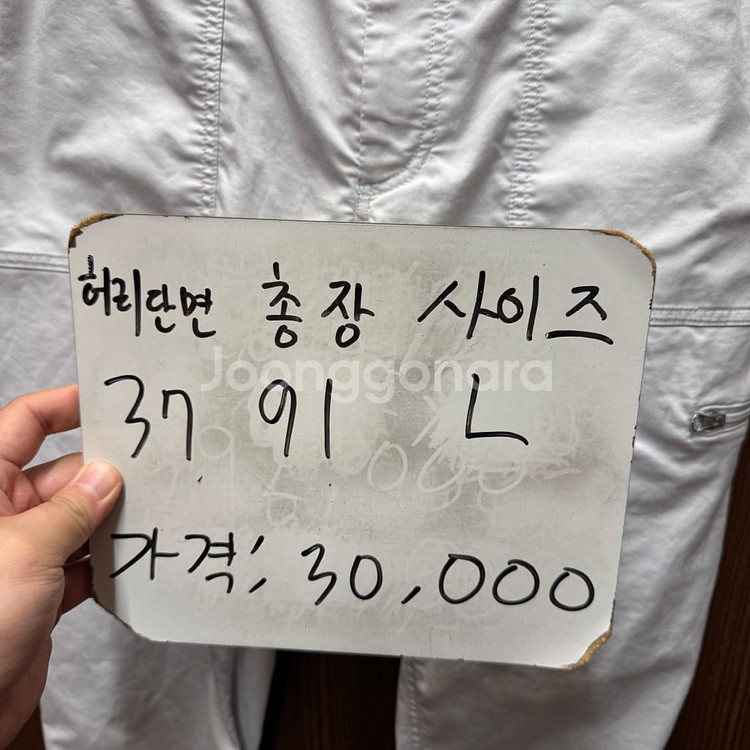 허리단면 총장 사이즈
Joonggonara
37 91 L
가격; 30,000